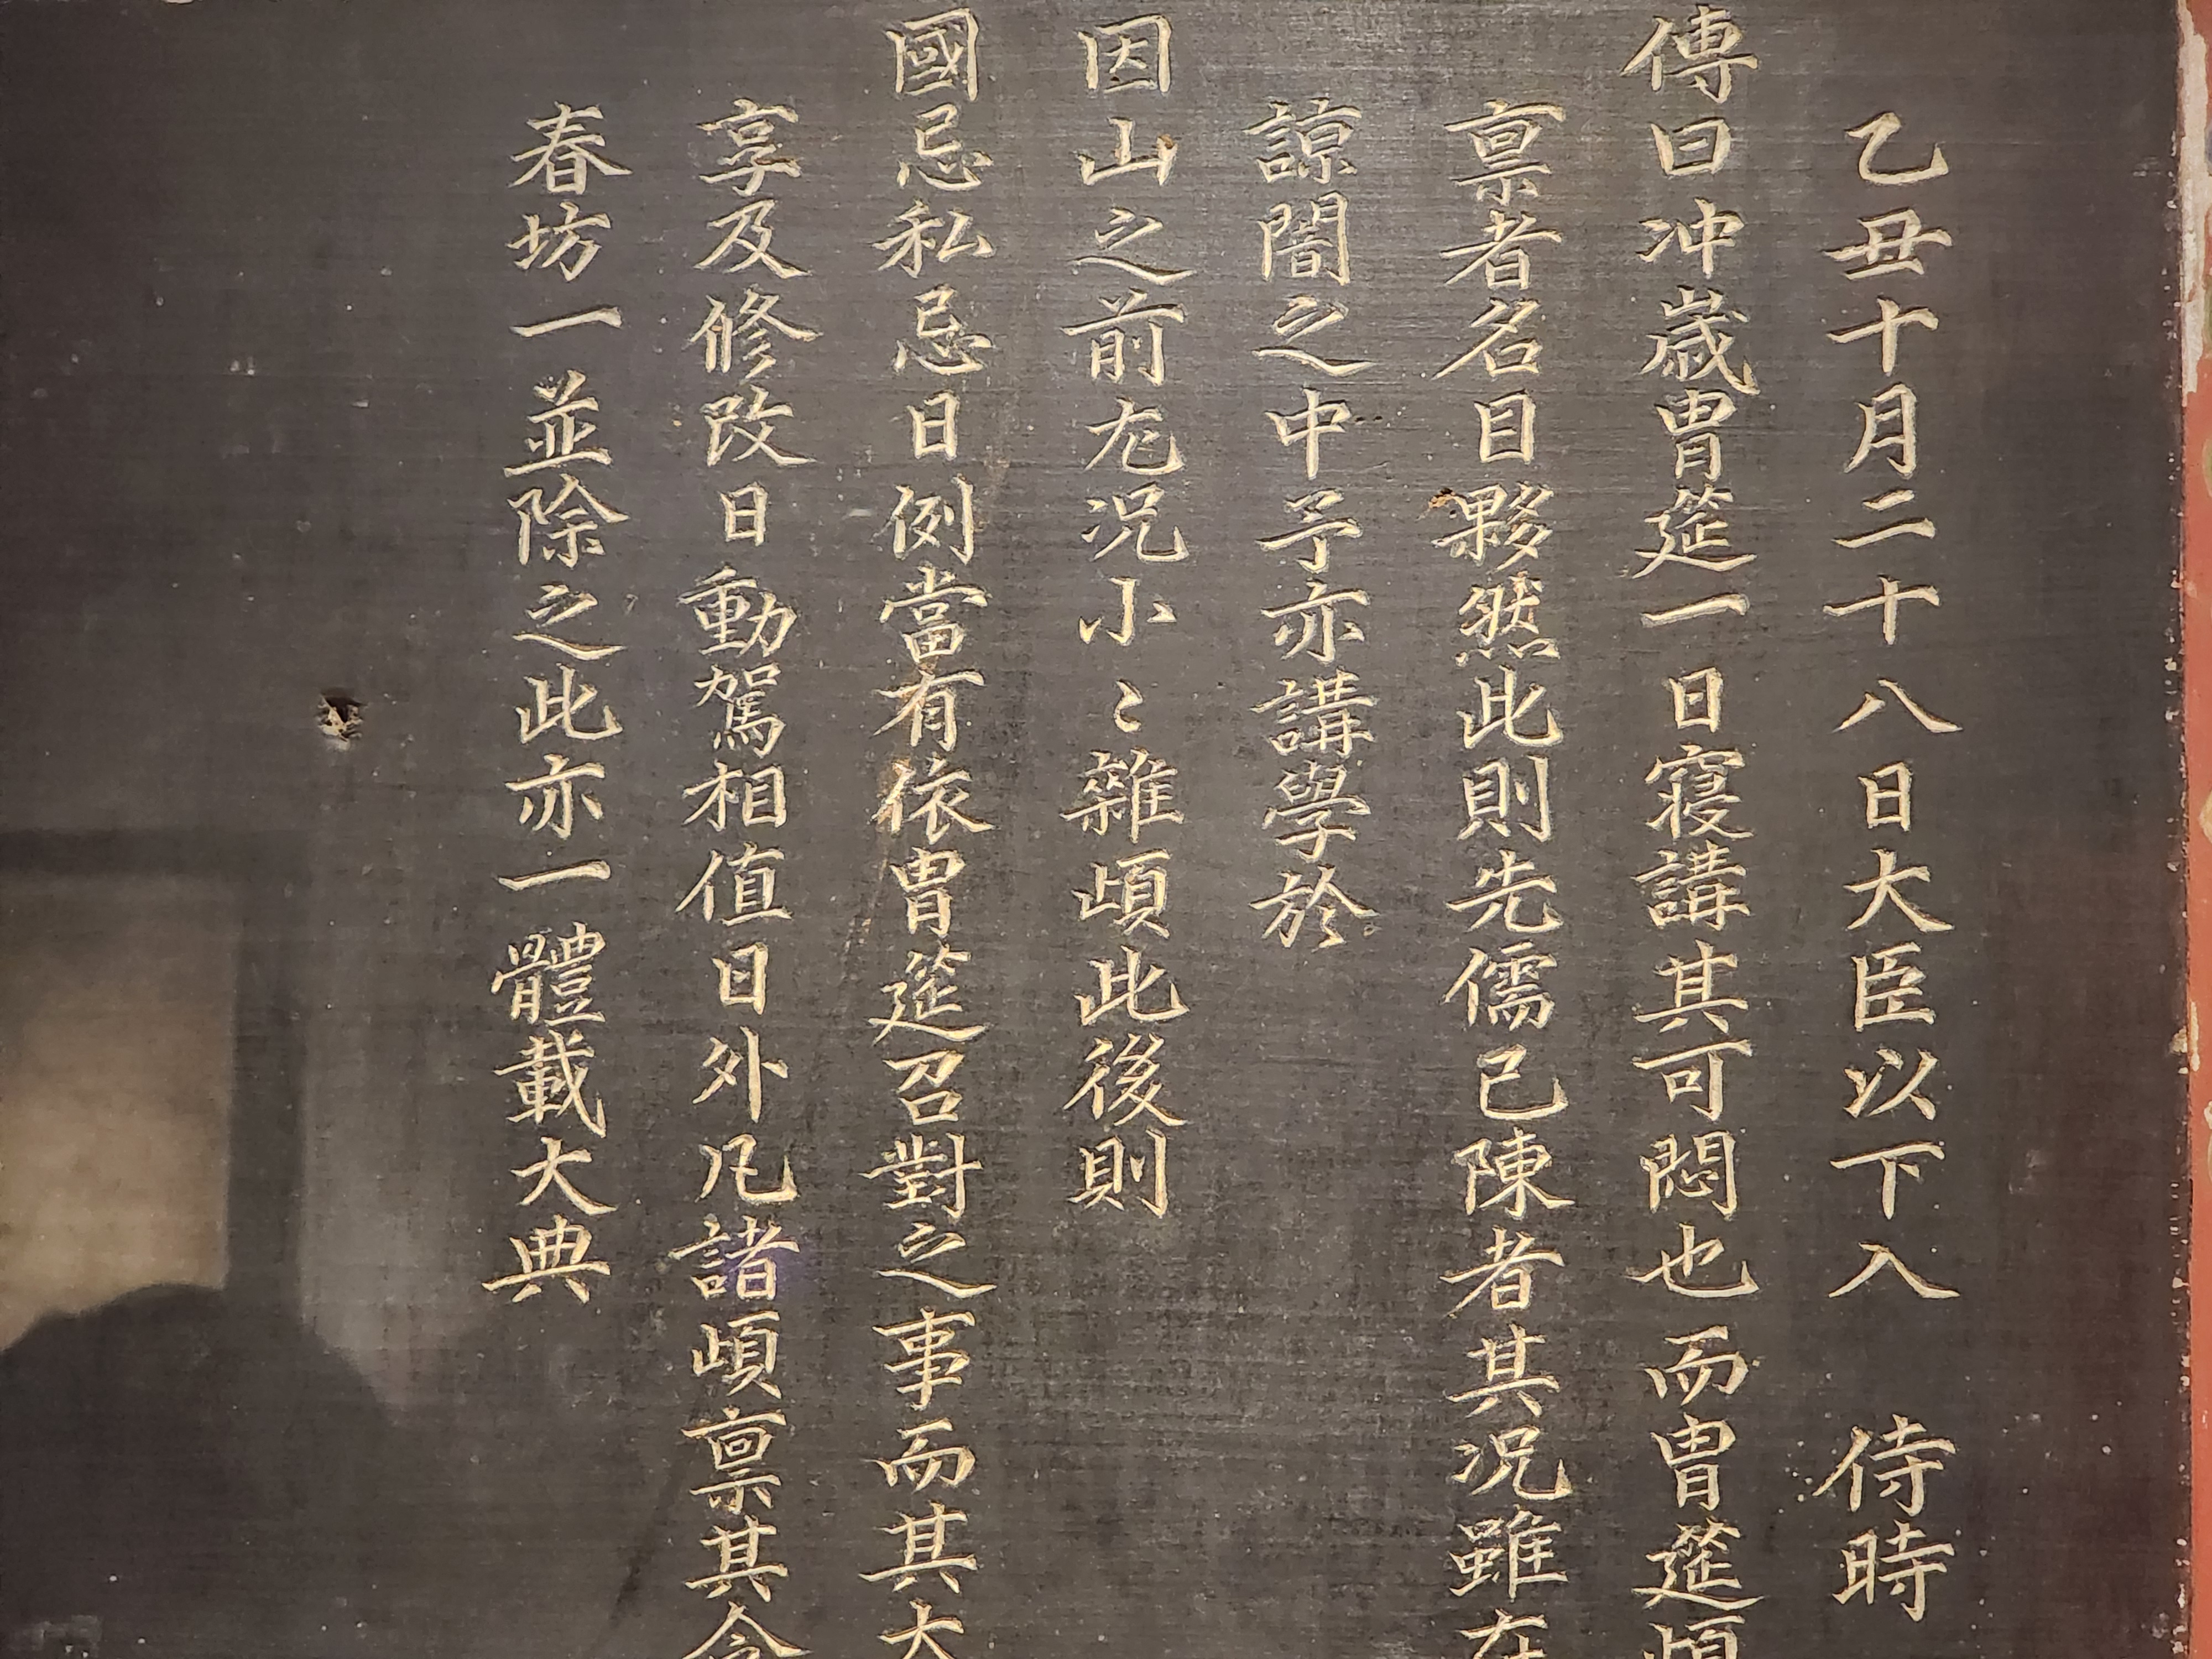 乙丑十月二十八日大臣以下入 侍時
傳曰冲歲冑筵一日寢講其可悶也而冑筵頉
稟者名目夥然此則先儒已陳者其况雖在
諒闇之中予亦講學於
因山之前尤况小〻雜頉此後則
國忌私忌日例當有依冑筵召對之事而其大
享及修改日動駕相值日外凡諸頉稟其令
春坊一並除之此亦一體載大典